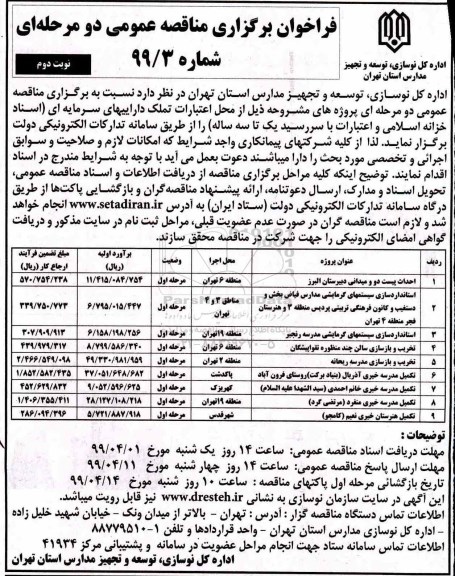 فراخوان برگزاری مناقصه عمومی دو مرحله‌ای
شماره ۹۹/۳
نوبت دوم
اداره کل نوسازی، توسعه و تجهیز
مدارس استان تهران
اداره کل نوسازی، توسعه و تجهیز مدارس استان تهران در نظر دارد نسبت به برگزاری مناقصه
عمومی دو مرحله ای پروژه های مشروحه ذیل از محل اعتبارات تملک داراییهای سرمایه ای (اسناد
خزانه اسلامی و اعتبارات با سررسید یک تا سه ساله) را از طریق سامانه تدارکات الکترونیکی دولت
برگزار نماید. لذا از کلیه شرکتهای پیمانکاری واجد شرایط که امکانات لازم و صلاحیت و سوابق
اجرائی و تخصصی مورد بحث را دارا میباشند دعوت بعمل می آید با توجه به شرایط مندرج در اسناد
اقدام نمایند. توضیح اینکه کلیه مراحل برگزاری مناقصه از دریافت اطلاعات و اسناد مناقصه عمومی،
تحویل اسناد و مدارک، ارسال دعوتنامه، ارائه پیشنهاد مناقصه‌گران و بازگشایی پاکت‌ها از طریق
درگاه سامانه تدارکات الکترونیکی دولت (ستاد ایران) به آدرس www.setadiran.ir انجام خواهد
شد و لازم است مناقصه گران در صورت عدم عضویت قبلی، مراحل ثبت نام در سایت مذکور و دریافت
گواهی امضای الکترونیکی را جهت شرکت در مناقصه محقق سازند.
ردیف عنوان پروژه محل اجرا وضعیت برآورد اولیه (ریال) مبلغ تضمین فرآیند ارجاع کار (ریال)
۱ احداث پیست دو و میدانی دبیرستان البرز منطقه ۶ تهران مرحله اول ۱۱/۴۱۵/۰۸۴/۷۵۴ ۵۷۰/۷۵۴/۲۳۸
۲ استانداردسازی سیستمهای گرمایشی مدارس فیاض بخش و دستغیب و کانون فرهنگی تربیتی پردیس منطقه ۳ و هنرستان فجر منطقه ۴ تهران مناطق ۳ و ۴ تهران مرحله اول ۶/۷۹۵/۰۱۵/۴۴۷ ۳۳۹/۷۵۰/۷۷۳
۳ استانداردسازی سیستمهای گرمایشی مدرسه رنجبر منطقه ۱۹ تهران مرحله اول ۶/۱۵۸/۱۹۸/۲۵۶ ۳۰۷/۹۰۹/۹۱۳
۴ تخریب و بازسازی سالن چند منظوره تقواپیشگان منطقه ۶ تهران مرحله اول ۸/۷۹۹/۵۸۶/۳۴۰ ۴۳۹/۹۷۹/۳۱۷
۵ تخریب و بازسازی مدرسه ریحانه منطقه ۲ تهران مرحله اول ۴۹/۳۳۰/۹۸۱/۹۵۹ ۲/۴۶۶/۵۴۹/۰۹۸
۶ تکمیل مدرسه خیری آذربال (بنیاد برکت)روستای فرون آباد پاکدشت مرحله اول ۳۷/۰۵۱/۶۴۸/۶۸۲ ۱/۸۵۲/۵۸۲/۴۳۵
۷ تکمیل مدرسه خیری خانم احمدی (سید الشهدا علیه السلام) کهریزک مرحله اول ۹/۰۵۲/۵۹۶/۶۲۵ ۴۵۲/۶۲۹/۸۳۲
۸ تکمیل مدرسه خیری منفرد (مرتضی گرد) منطقه ۱۹ تهران مرحله اول ۲۸/۱۲۷/۱۰۸/۲۱۸ ۱/۴۰۶/۳۵۵/۴۱۱
۹ تکمیل هنرستان خیری نعیم (کامجو) شهرقدس مرحله اول ۵/۷۲۱/۸۸۷/۹۱۸ ۲۸۶/۰۹۴/۳۹۶
توضیحات :
مهلت دریافت اسناد مناقصه عمومی: ساعت ۱۴ روز یک شنبه مورخ ۹۹/۰۴/۰۱
مهلت ارسال پاسخ مناقصه عمومی: ساعت ۱۴ روز چهار شنبه مورخ ۹۹/۰۴/۱۱
تاریخ بازگشائی مرحله اول پاکتهای مناقصه : ساعت ۱۰ روز شنبه مورخ ۹۹/۰۴/۱۴
این آگهی در سایت سازمان نوسازی به نشانی www.dresteh.ir نیز قابل رویت میباشد.
اطلاعات تماس دستگاه مناقصه گزار : آدرس : تهران - بالاتر از میدان ونک - خیابان شهید خلیل زاده
- اداره کل نوسازی مدارس استان تهران - واحد قراردادها و تلفن ۱-۸۸۷۷۹۵۱۰
اطلاعات تماس سامانه ستاد جهت انجام مراحل عضویت در سامانه و پشتیبانی مرکز ۴۱۹۳۴
اداره کل نوسازی، توسعه و تجهیز مدارس استان تهران